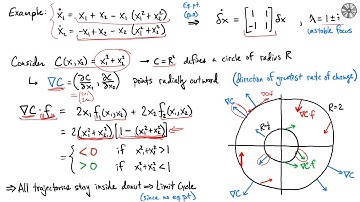 Example: { ẋ₁ = x₁ + x₂ - x₁(x₁²+x₂²)
ẋ₂ = -x₁ + x₂ - x₂(x₁²+x₂²)
eq.pt. (0,0) ⇒ δẋ = [1 1; -1 1] δx , λ = 1 ± i
unstable focus
Consider C(x₁,x₂) = x₁² + x₂² → C = R² defines a circle of radius R
↳ ∇C = (∂C/∂x₁, ∂C/∂x₂) points radially outward (direction of greatest rate of change)
↳ ∇C·f = 2x₁ f₁(x₁,x₂) + 2x₂ f₂(x₁,x₂)
= 2(x₁²+x₂²)[1 - (x₁²+x₂²)]
= { < 0 if x₁²+x₂² > 1
> 0 if x₁²+x₂² < 1
⇒ All trajectories stay inside donut ⇒ Limit Cycle
(since no eq.pt)
∇C
∇C
R=2
∇C·f
∇C·f
∇C
∇C